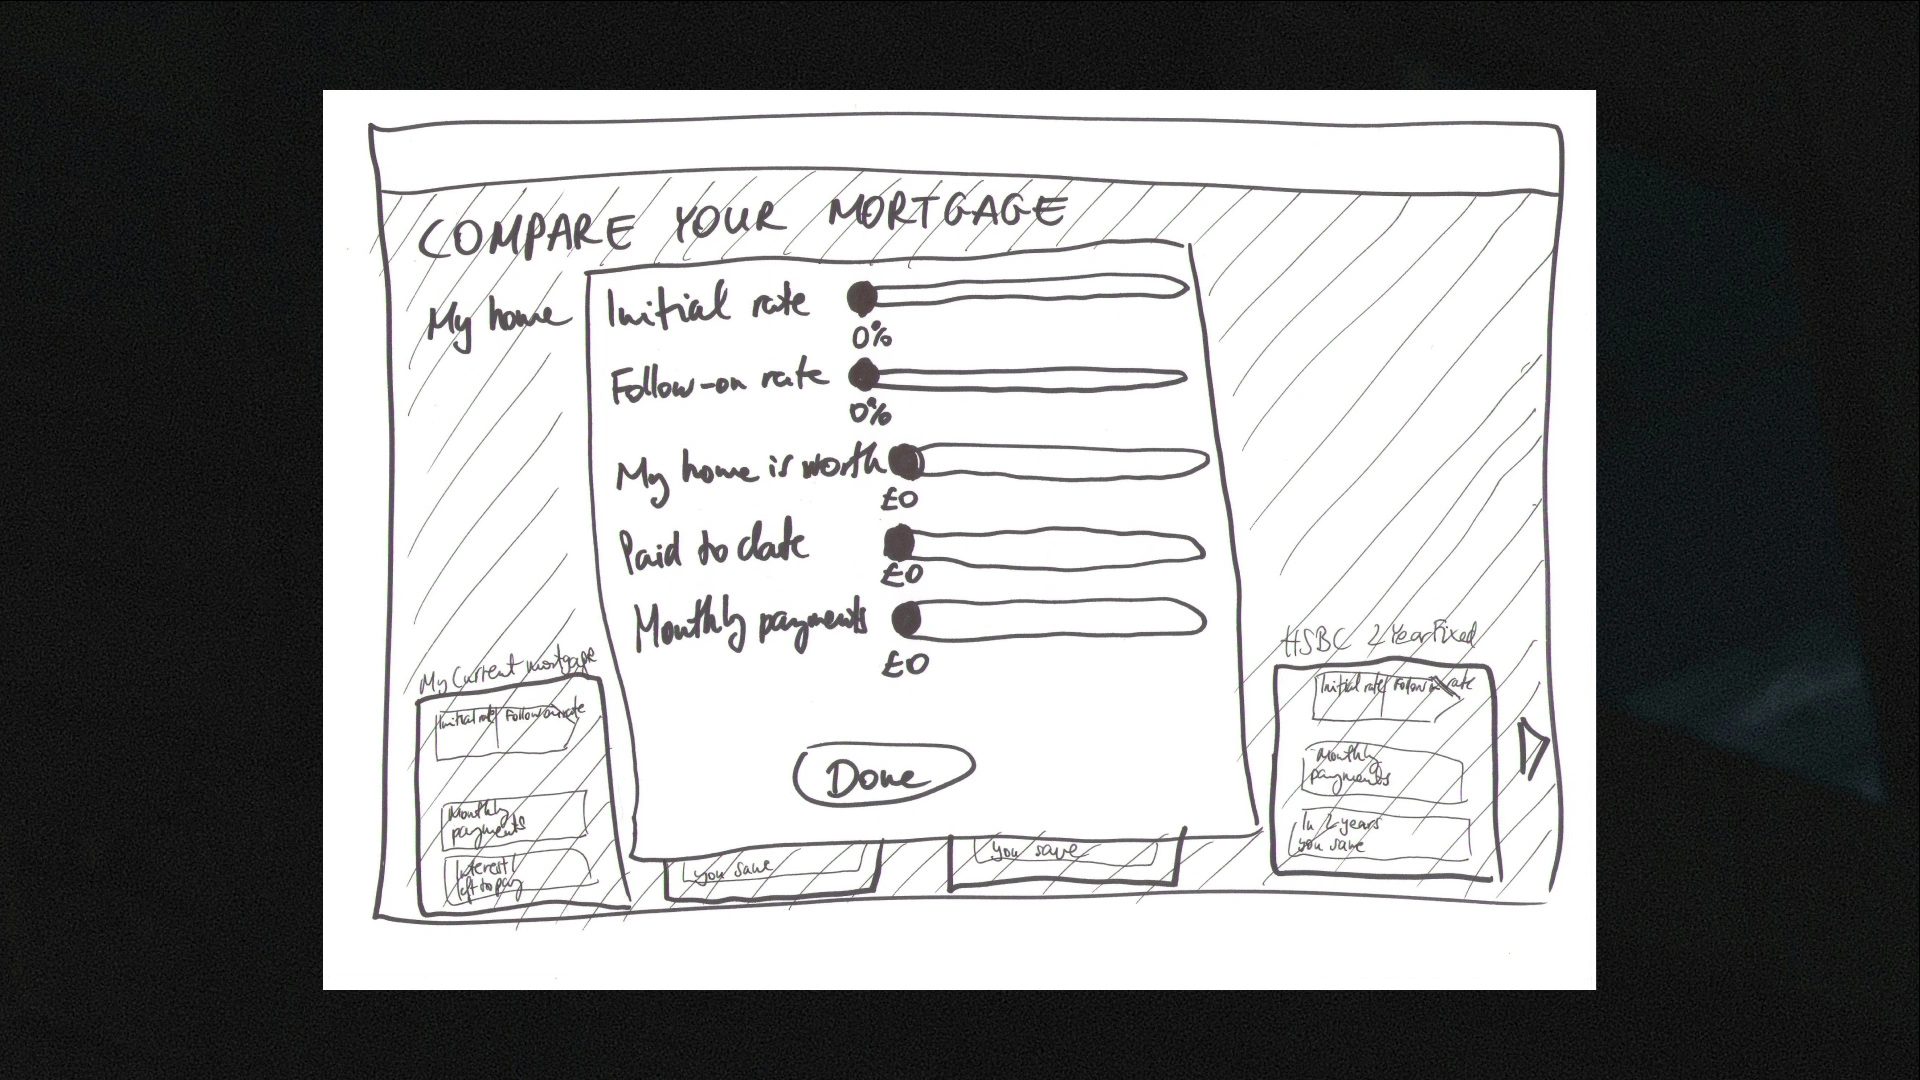 COMPARE YOUR MORTGAGE
My home
Initial rate
0%
Follow-on rate
0%
My home is worth
£0
Paid to date
£0
Monthly payments
£0
Done
My Current mortgage
Initial rate Follow on rate
Monthly
payments
Interest
left to pay
you save
you save
HSBC 2 Year Fixed
Initial rate Follow on rate
Monthly
payments
In 2 years
you save